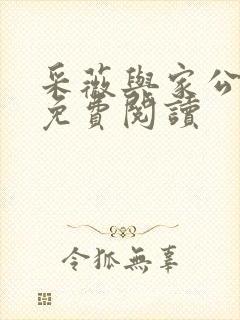 采薇與家公
免費閱讀
令狐無辜